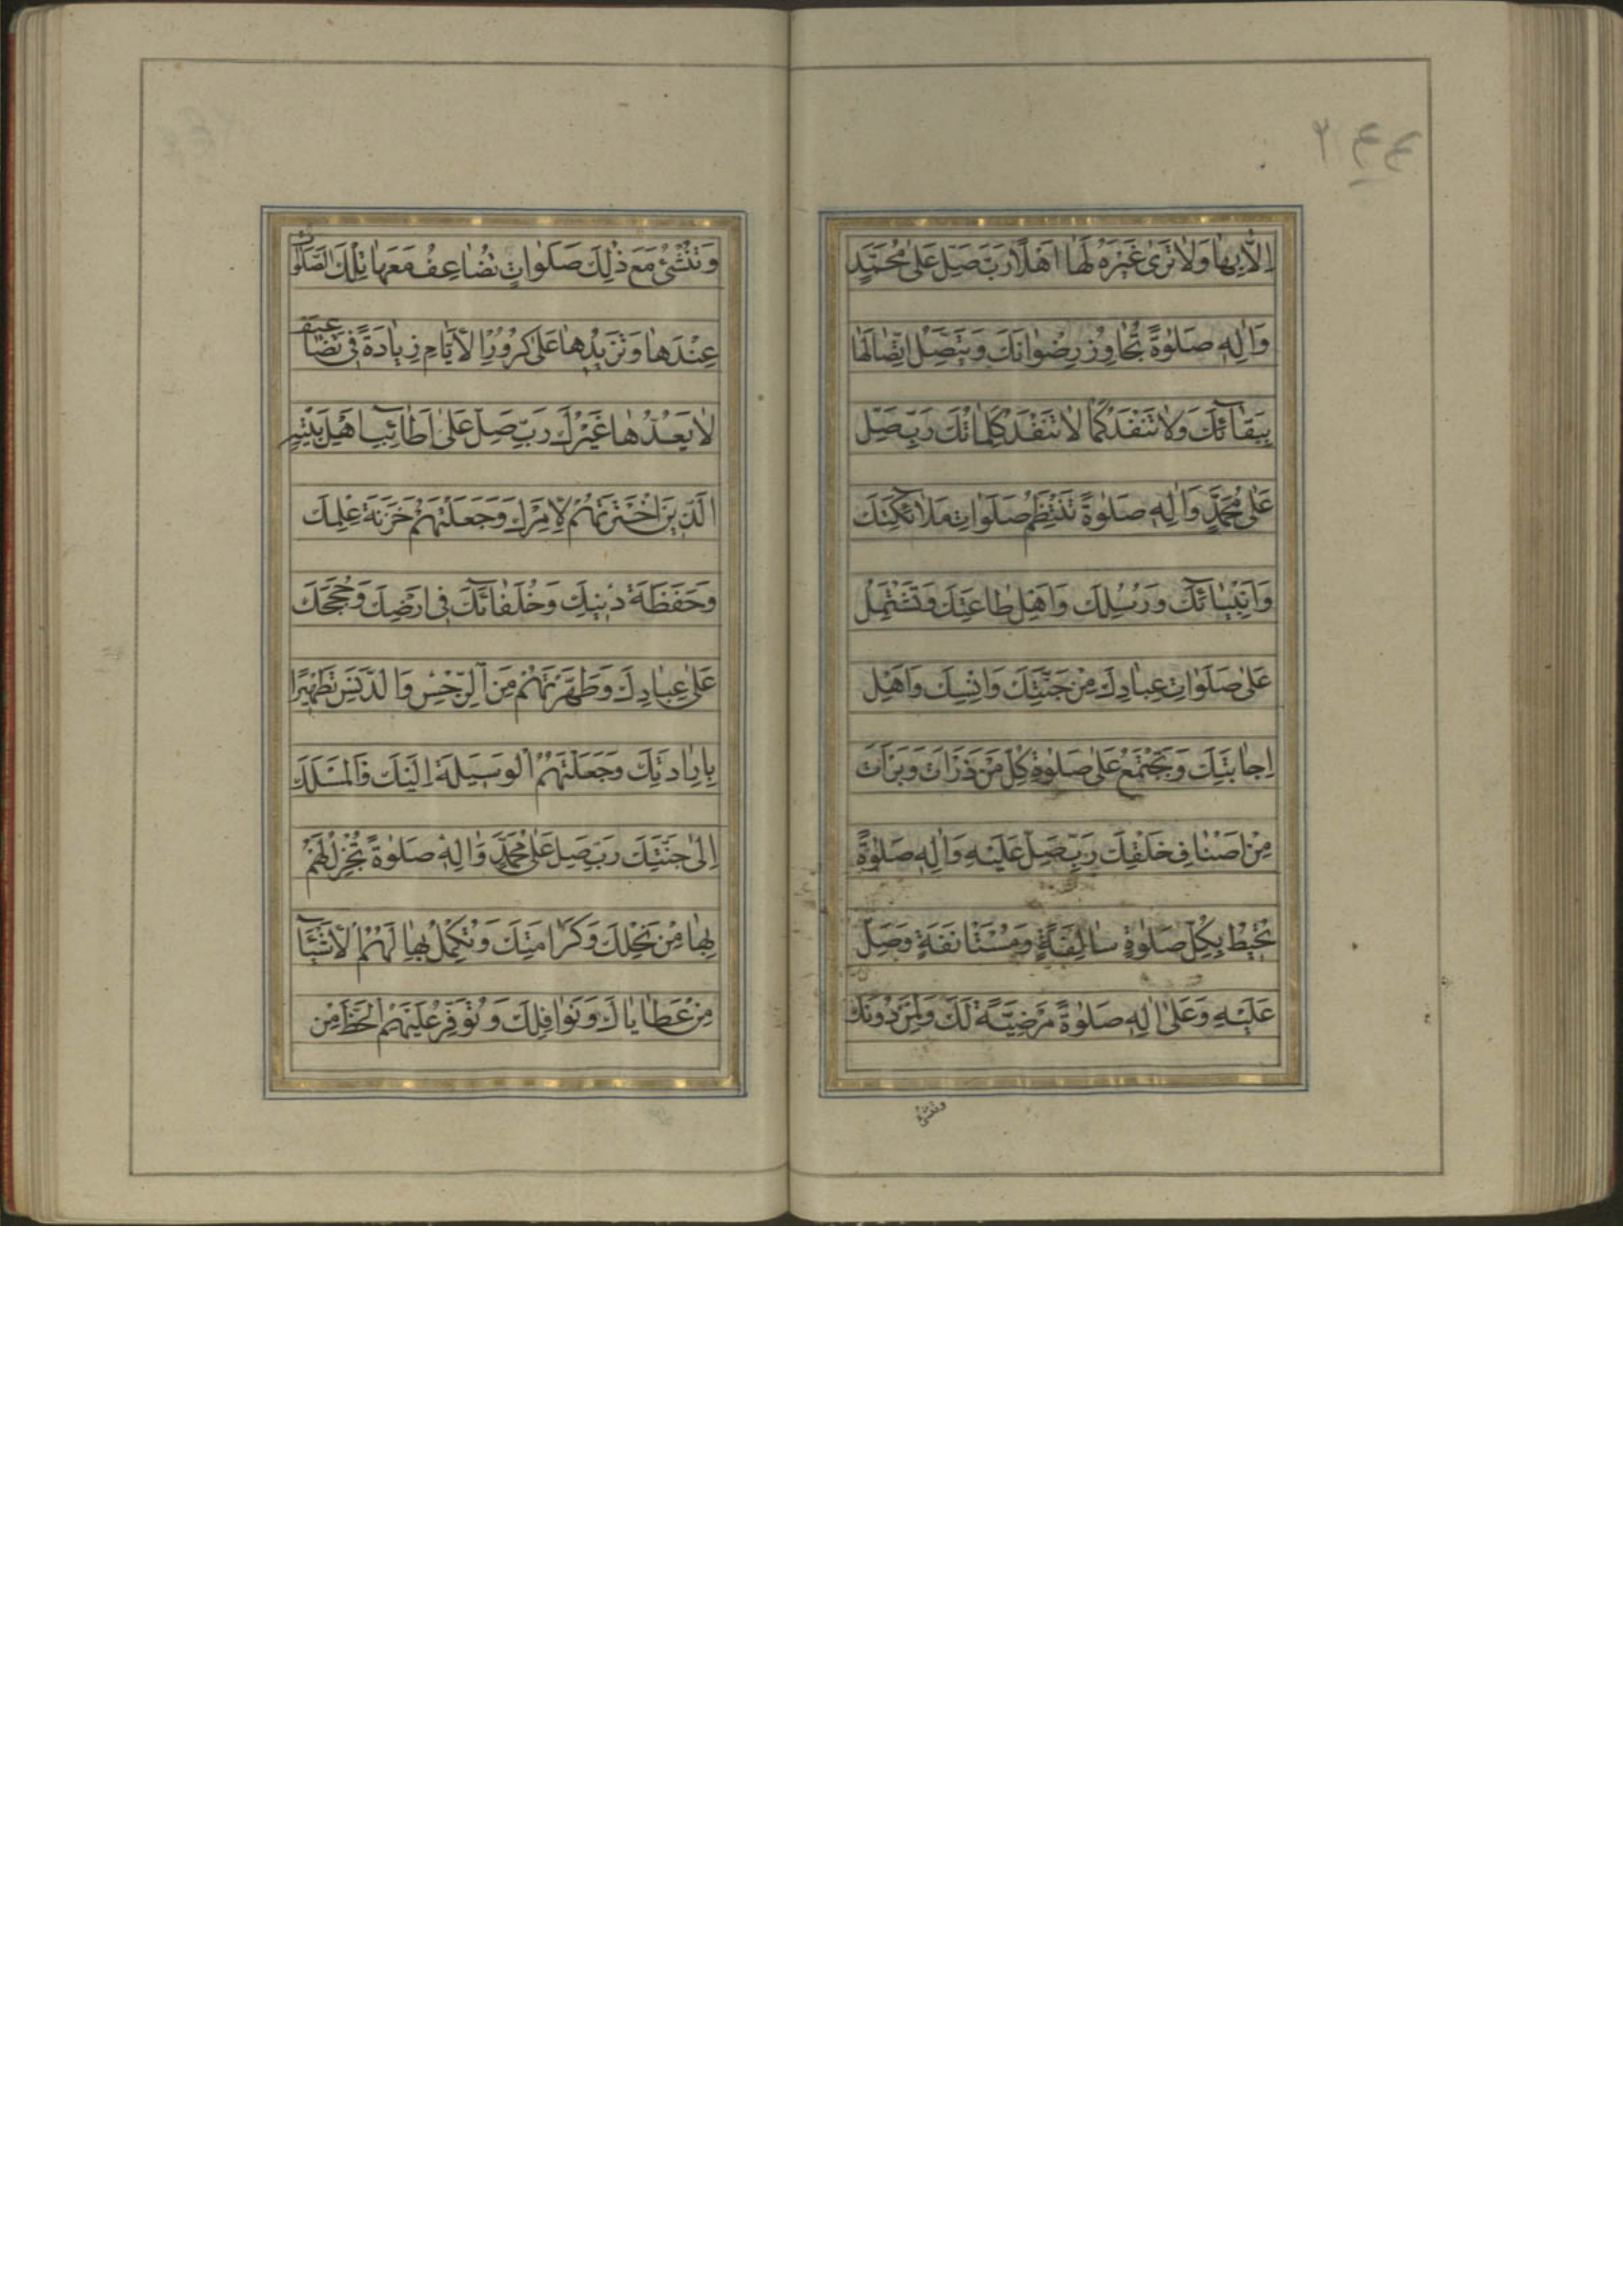 ۲۴۴
اِلّا بِهٰا وَلٰا تَرىٰ غَيْرَهُ لَهٰا اَهْلًا رَبِّ صَلِّ عَلىٰ مُحَمَّدٍ
وَاٰلِهِ صَلٰوةً تُجٰاوِزُ رِضْوٰانَكَ وَيَتَّصِلُ اتِّصٰالُهٰا
بِبَقٰآئِكَ وَلٰا تَنْفَدُ كَمٰا لٰا تَنْفَدُ كَلِمٰاتُكَ رَبِّ صَلِّ
عَلىٰ مُحَمَّدٍ وَاٰلِهِ صَلٰوةً تَنْتَظِمُ صَلَوٰاتِ مَلٰآئِكَتِكَ
وَاَنْبِيٰآئِكَ وَرُسُلِكَ وَاَهْلِ طٰاعَتِكَ وَتَشْتَمِلُ
عَلىٰ صَلَوٰاتِ عِبٰادِكَ مِنْ جِنِّكَ وَاِنْسِكَ وَاَهْلِ
اِجٰابَتِكَ وَتَجْتَمِعُ عَلىٰ صَلٰوةِ كُلِّ مَنْ ذَرَاْتَ وَبَرَاْتَ
مِنْ اَصْنٰافِ خَلْقِكَ رَبِّ صَلِّ عَلَيْهِ وَاٰلِهِ صَلٰوةً
تُحيطُ بِكُلِّ صَلٰوةٍ سٰالِفَةٍ وَمُسْتَاْنَفَةٍ وَصَلِّ
عَلَيْهِ وَعَلىٰ اٰلِهِ صَلٰوةً مَرْضِيَّةً لَكَ وَلِمَنْ دُونَكَ
وتنشئ
وَتُنْشِئُ مَعَ ذٰلِكَ صَلَوٰاتٍ تُضٰاعِفُ مَعَهٰا تِلْكَ الصَّلَوٰاتِ
عِنْدَهٰا وَتَزيدُهٰا عَلىٰ كُرُورِ الْاَيّٰامِ زِيٰادَةً فى تَضٰاعيفَ
لٰا يَعُدُّهٰا غَيْرُكَ رَبِّ صَلِّ عَلىٰ اَطٰآئِبِ اَهْلِ بَيْتِهِ
الَّذينَ اخْتَرْتَهُمْ لِاَمْرِكَ وَجَعَلْتَهُمْ خَزَنَةَ عِلْمِكَ
وَحَفَظَةَ دينِكَ وَخُلَفٰآئَكَ فى اَرْضِكَ وَحُجَجَكَ
عَلىٰ عِبٰادِكَ وَطَهَّرْتَهُمْ مِنَ الرِّجْسِ وَالدَّنَسِ تَطْهيرًا
بِاِرٰادَتِكَ وَجَعَلْتَهُمُ الْوَسيلَةَ اِلَيْكَ وَالْمَسْلَكَ
اِلىٰ جَنَّتِكَ رَبِّ صَلِّ عَلىٰ مُحَمَّدٍ وَاٰلِهِ صَلٰوةً تُجْزِلُ لَهُمْ
بِهٰا مِنْ نِحَلِكَ وَكَرٰامَتِكَ وَتُكْمِلُ بِهٰا لَهُمُ الْاَشْيٰآءَ
مِنْ عَطٰايٰاكَ وَنَوٰافِلِكَ وَتُوَفِّرُ عَلَيْهِمُ الْحَظَّ مِنْ